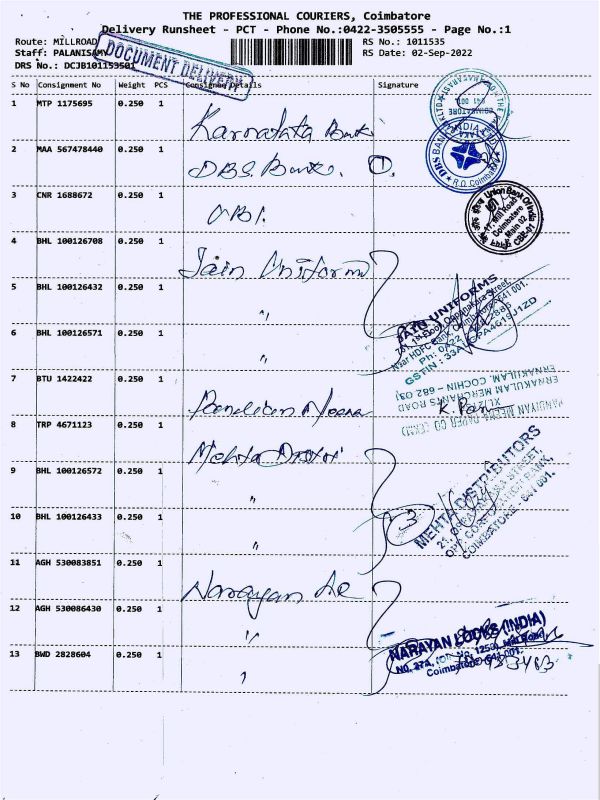 THE PROFESSIONAL COURIERS, Coimbatore
Delivery Runsheet - PCT - Phone No.:0422-3505555 - Page No.:1
Route: MILLROAD
RS No.: 1011535
Staff: PALANISAMY
RS Date: 02-Sep-2022
DRS No.: DCJB101153501
DOCUMENT DELIVERY
S No Consignment No Weight PCS Consignee Details Signature
1 MTP 1175695 0.250 1 Karnataka Bank
2 MAA 567478440 0.250 1 DBS. Bank. 1.
DBS BANK INDIA
R.O. Coimbatore
3 CNR 1688672 0.250 1 UBI.
Union Bank Of India
17, Mill Road
Coimbatore
Main 02
CBE-01
4 BHL 100126708 0.250 1 Jain Uniforms
5 BHL 100126432 0.250 1 "
JAIN UNIFORMS
Near HDFC Bank, Coimbatore-641 001.
6 BHL 100126571 0.250 1 "
7 BTU 1422422 0.250 1
ERNAKULAM, COCHIN - 682 031
ERNAKULAM MERCHANTS ROAD
8 TRP 4671123 0.250 1 Mehta Distri
9 BHL 100126572 0.250 1 "
MEHTA DISTRIBUTORS
OPP. CORPORATION BANK,
COIMBATORE - 641 001.
10 BHL 100126433 0.250 1 " 3
11 AGH 530083851 0.250 1 Narayan
12 AGH 530086430 0.250 1 "
NARAYAN LOCKS (INDIA)
13 BWD 2828604 0.250 1 "
Coimbatore-641 001.